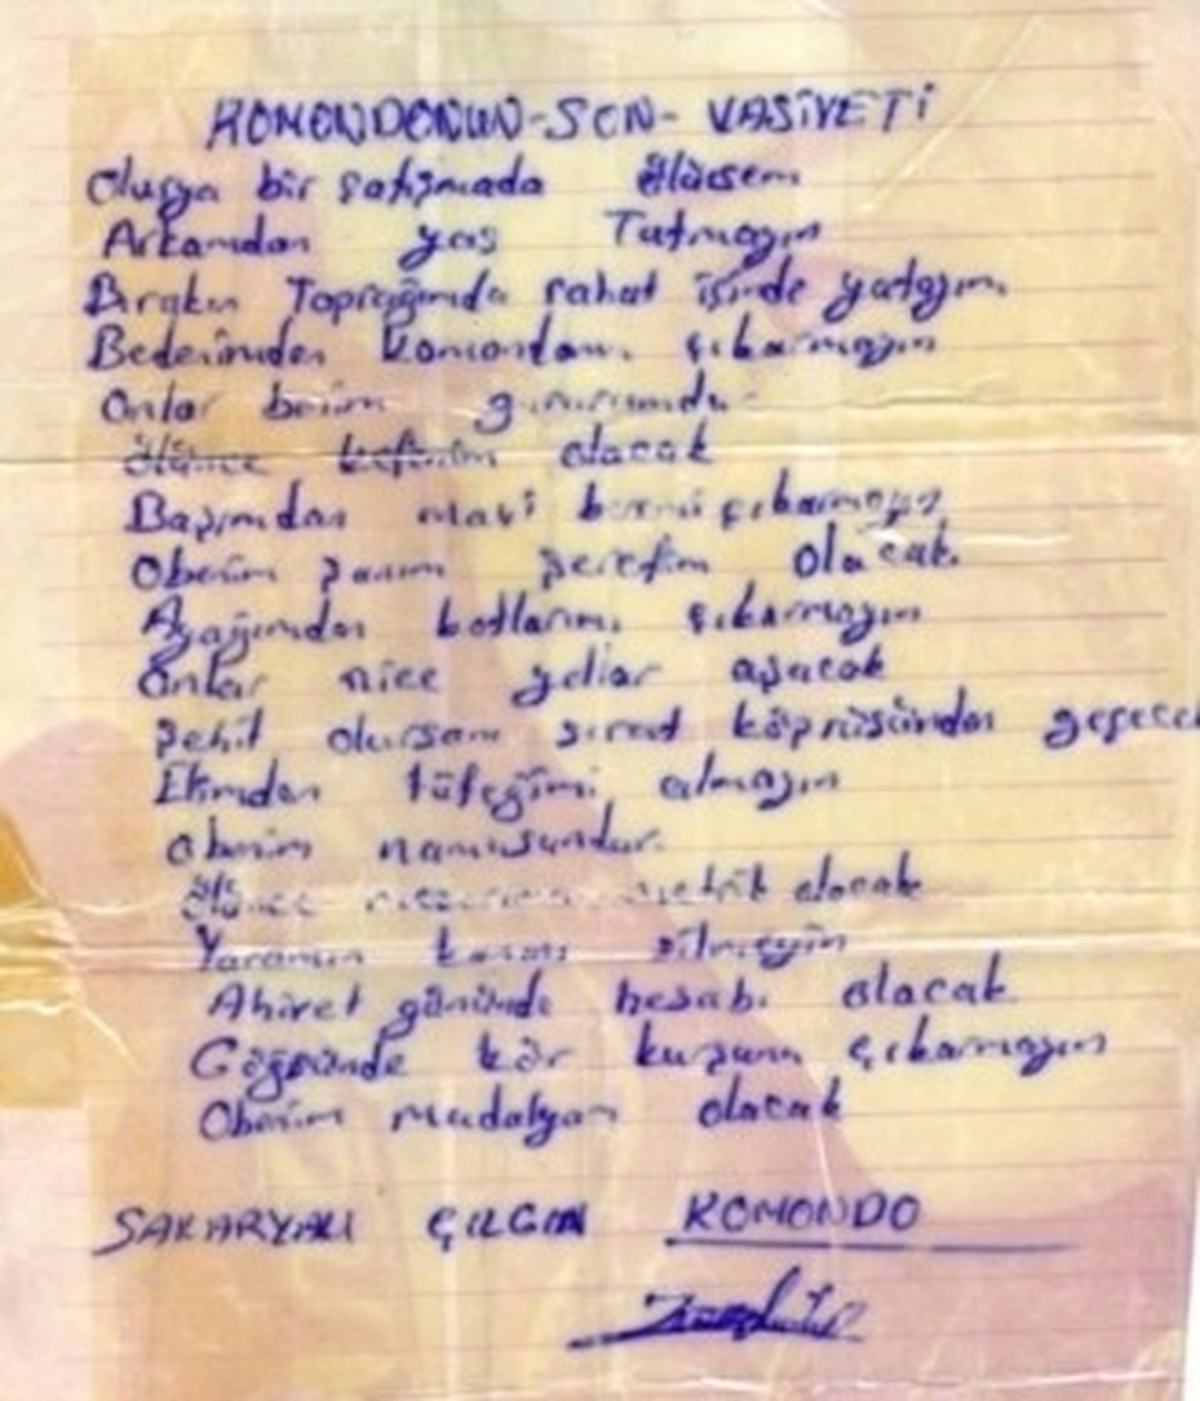 KOMONDONUN-SON-VASİYETİ
Oluşya bir çatışmada ölürsem
Arkamdan yas Tutmayın
Bırakın Toprağımda rahat içinde yatayım
Bedenimden komandomı çıkarmayın
Onlar benim gururumdu
ölünce kefenim olacak
Başımdan mavi beremi çıkarmayın
Obenim şanım şerefim olacak
Ayağımdan botlarımı çıkarmayın
Onlar nice yollar aşacak
Şehit olursam sırat köprüsünden geçecek
Elimden tüfeğimi almayın
obenim namusumdur.
ölünce olacak
Yaramın kanını silmeyin
Ahiret gününde hesabı olacak
Göğsünde kör kurşunu çıkarmayın
Obenim madalyam olacak
SAKARYALI ÇILGIN KOMONDO